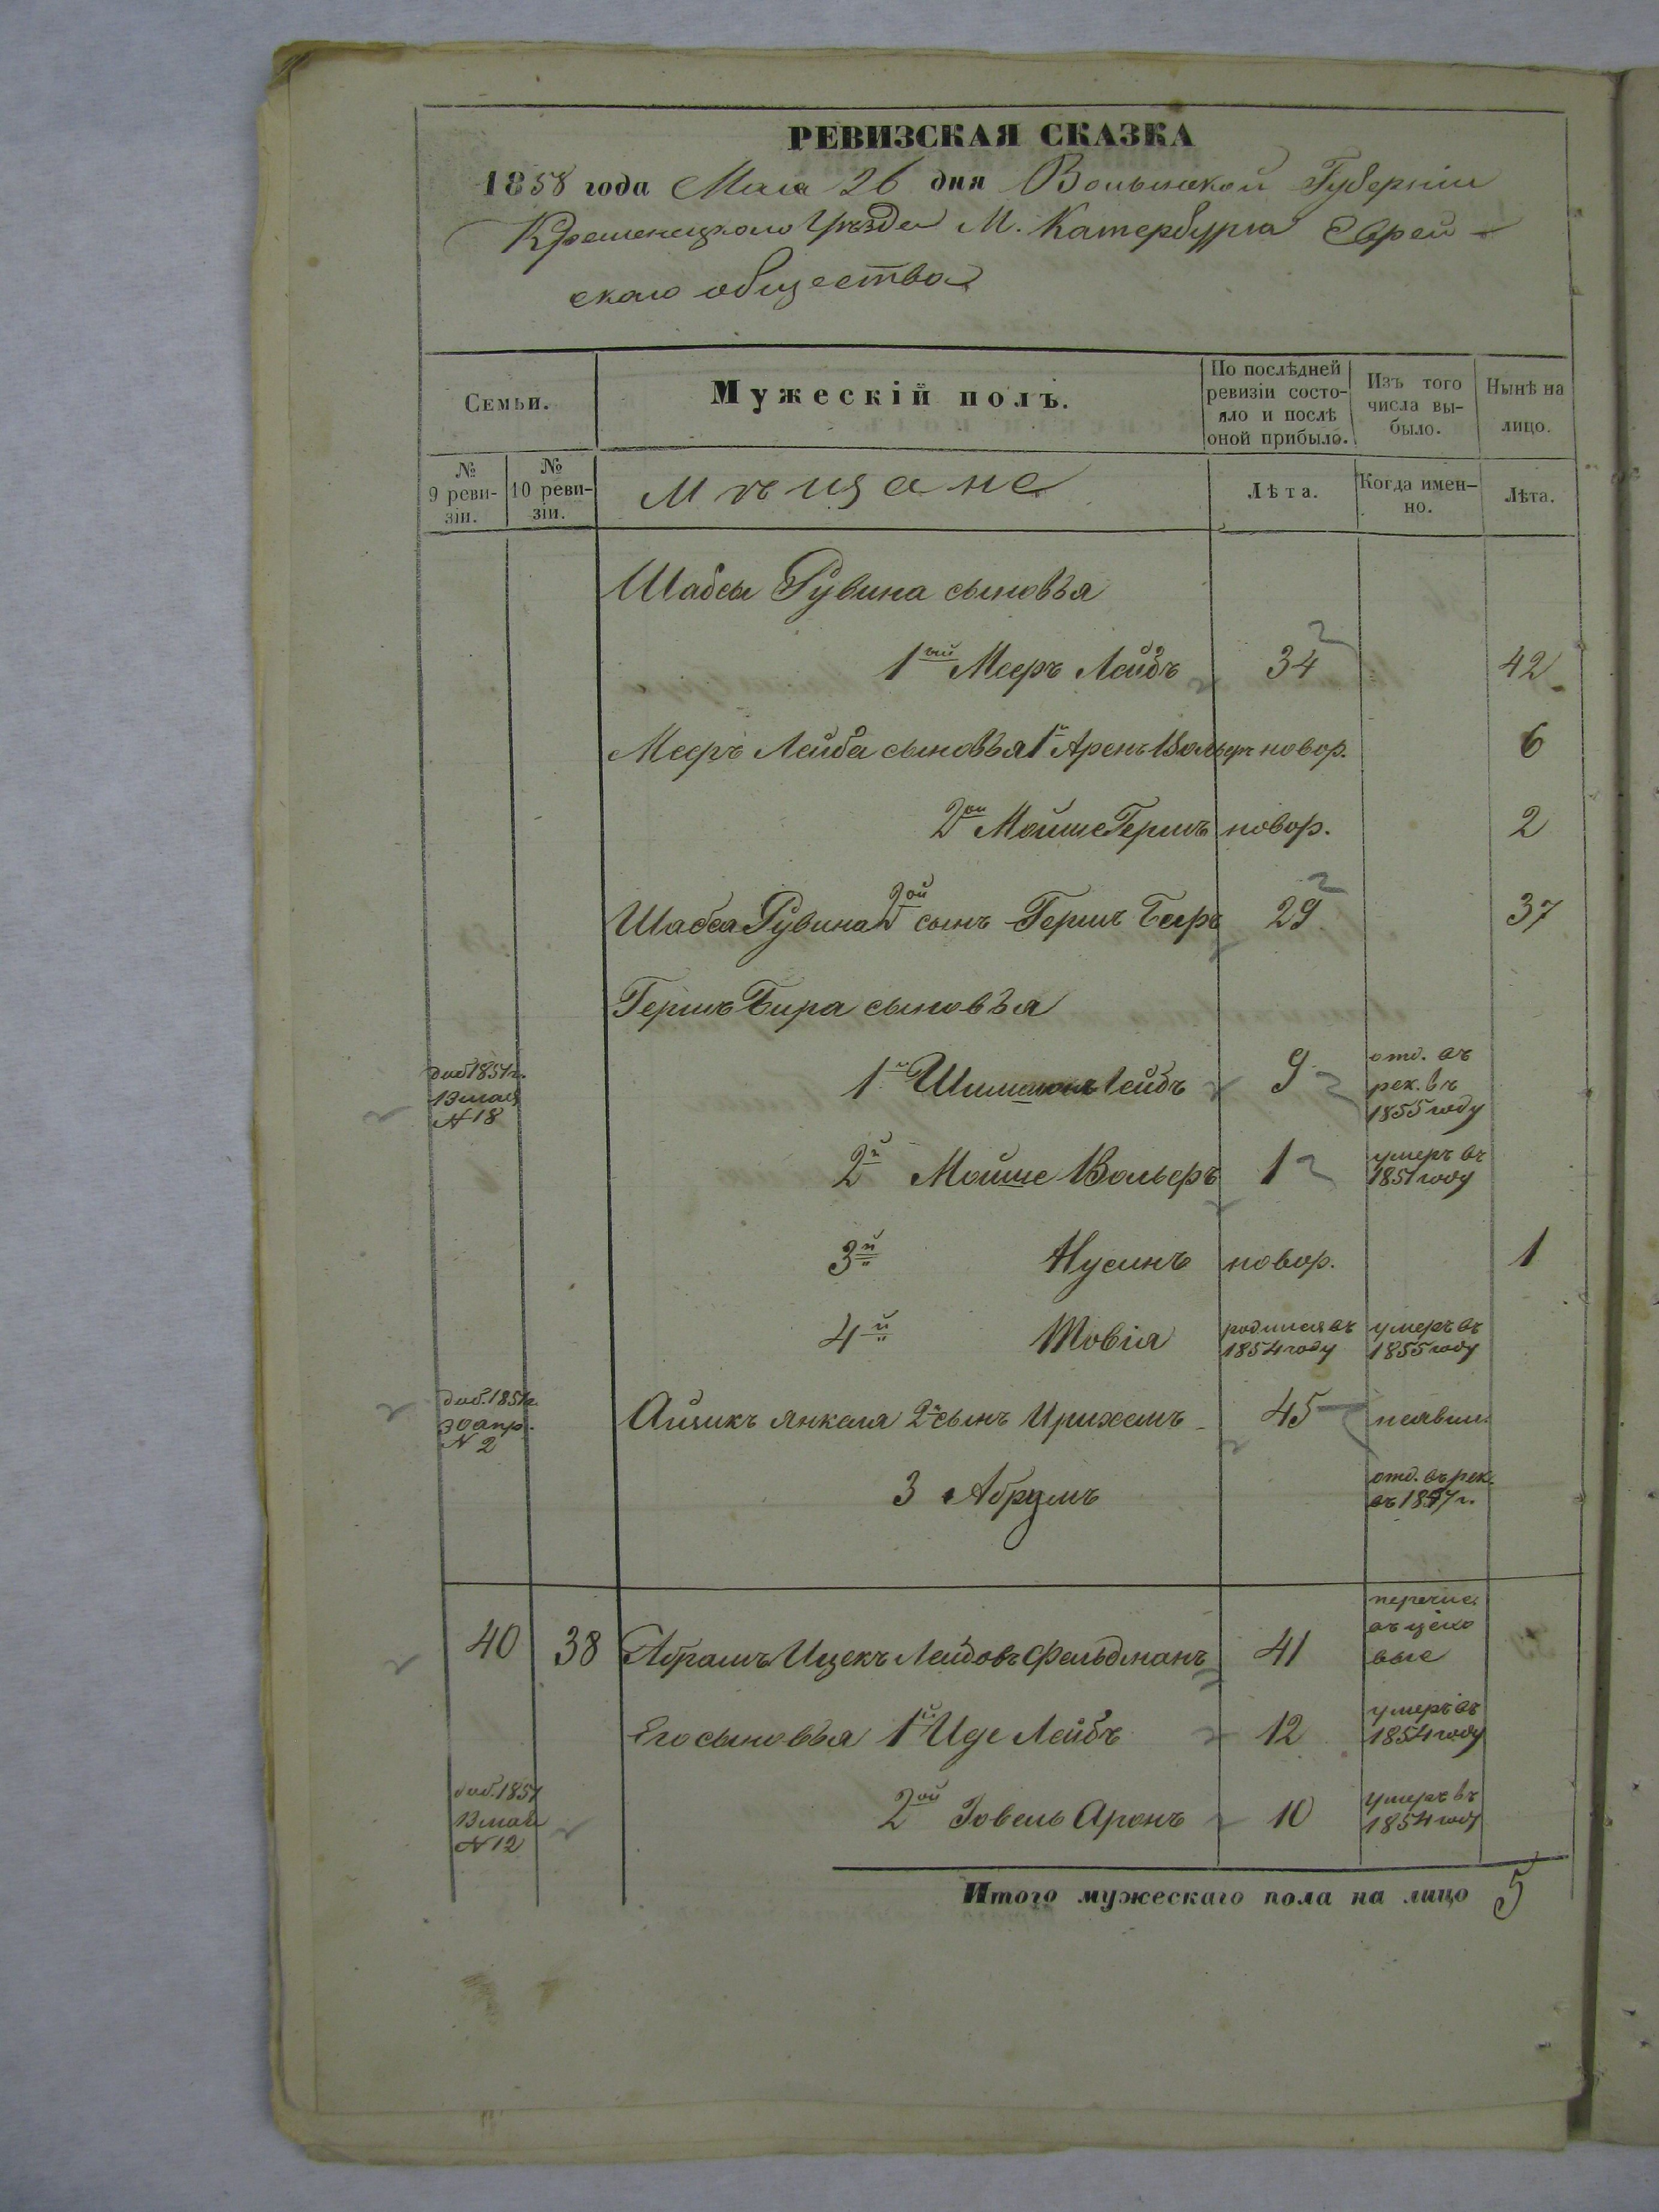 РЕВИЗСКАЯ СКАЗКА
1858 года Мая 26 дня Волынской Губерніи
Кременецкого Уѣзда М. Катербурга Еврей-
скаго общества
Семьи.
Мужескій полъ.
По послѣдней
ревизіи состо-
яло и послѣ
оной прибыло.
Изъ того
числа вы-
было.
Нынѣ на
лицо.
№
9 реви-
зіи.
№
10 реви-
зіи.
Мѣщане
Лѣта.
Когда имен-
но.
Лѣта.
Шабсы Рувина сыновъя
1ый Мееръ Лейбъ 34 42
Мееръ Лейба сыновъя 1й Аренъ Вольеръ новор. 6
2ой Мойше Гершъ новор. 2
Шабса Рувина 2ой сынъ Гершъ Беръ 29 37
Гершъ Бира сыновъя
доб 1851г.
13 мая
N 18
1й Лейбъ 9 отд. въ
рек. въ
1855 году
2й Мойше Вольеръ 1 умеръ въ
1851 году
3й Нусинъ новор. 1
4й Товія родился въ
1854 году
умеръ въ
1855 году
доб. 1851г.
30 апр.
N 2
Айзикъ Янкеля 2й сынъ Ирихемъ 45
3 Абрумъ
отд. въ рек.
40 38 Абрамъ Ицекъ Лейбовъ Фельдманъ 41 перечис.
въ цехо
вые
Его сыновъя 1й Иде Лейбъ 12 умеръ въ
1854 году
доб. 1851
13 мая
N 12
2ой Іовель Аронъ 10 умеръ въ
1854 году
Итого мужескаго пола на лицо 5